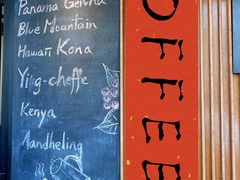 Panama Geisha
Blue Mountain
Hawaii Kona
Ying-cheffe
Kenya
Mandheling
OFFEE